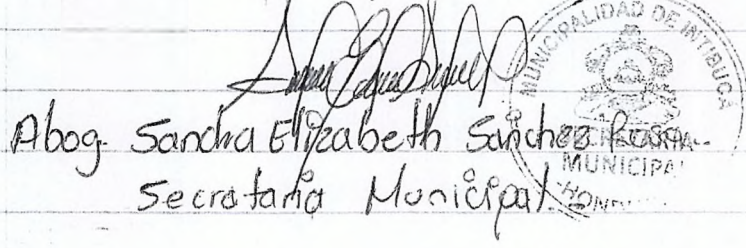 MUNICIPALIDAD DE INTIBUCA
Abog. Sandra Elizabeth Sánchez
SECRETARIA
MUNICIPAL
Secretaria Municipal.